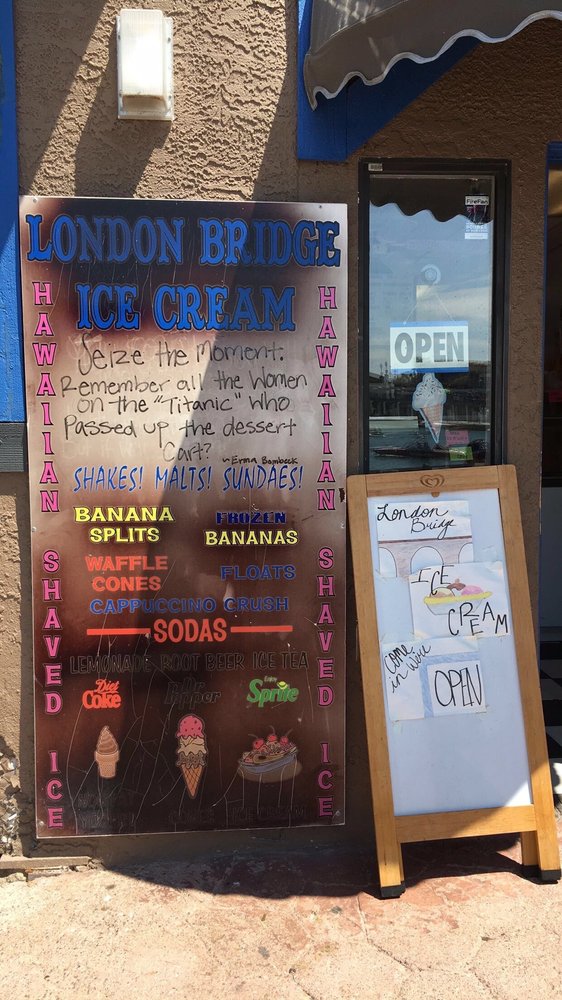 LONDON BRIDGE
ICE CREAM
HAWAIIAN SHAVED ICE
HAWAIIAN SHAVED ICE
Seize the Moment:
Remember all the Women
on the "Titanic" Who
Passed up the dessert
Cart?
~Erma Bombeck
SHAKES! MALTS! SUNDAES!
BANANA
SPLITS
FROZEN
BANANAS
WAFFLE
CONES
FLOATS
CAPPUCCINO CRUSH
SODAS
LEMONADE ROOT BEER ICE TEA
Diet
Coke
Dr
Pepper
Enjoy
Sprite
OPEN
FireFan
London
Bridge
ICE
CREAM
Come
in We're
OPEN